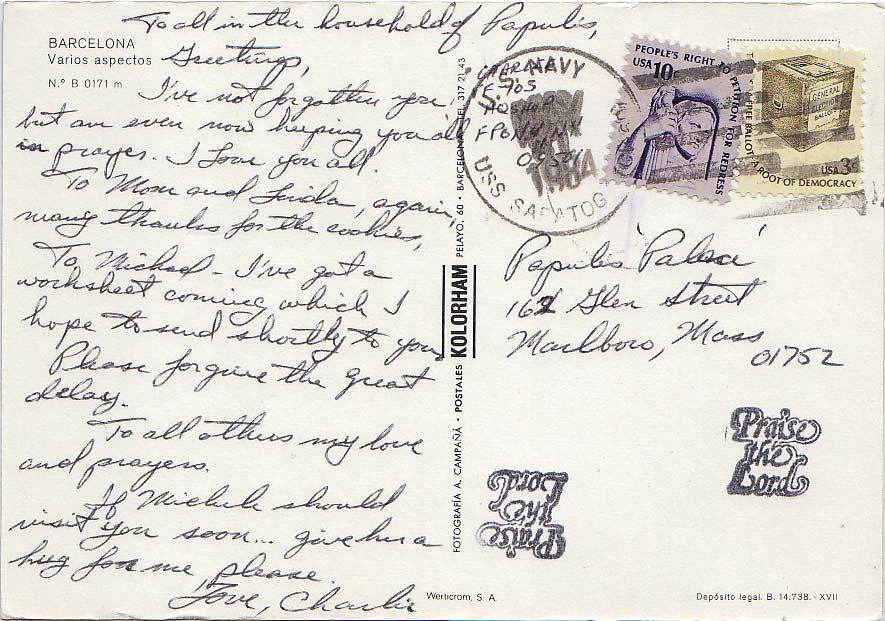 To all in the household of Papulis,
BARCELONA
Varios aspectos
N.º B 0171 m
Greetings,
I've not forgotten you
but am even now keeping you all
in prayer. I love you all.
To Mom and Linda, again,
many thanks for the cookies,
To Michael - I've got a
worksheet coming which I
hope to send shortly to you
Please forgive the great
delay.
To all others my love
and prayers.
If Michele should
visit you soon... give her a
hug for me, please.
Love, Charlie
FOTOGRAFÍA A. CAMPAÑÁ · POSTALES KOLORHAM PELAYO, 60 · BARCELONA TEL. 317 21 43
U.S. NAVY
USS SARATOGA
1984
PEOPLE'S RIGHT TO PETITION FOR REDRESS
USA 10c
GENERAL
ELECTION
BALLOTS
A ROOT OF DEMOCRACY
USA 3c
Papulis 'Palace'
162 Glen Street
Marlboro, Mass
01752
Praise
the
Lord
Praise
the
Lord
Werticrom, S. A.
Depósito legal. B. 14.738. - XVII